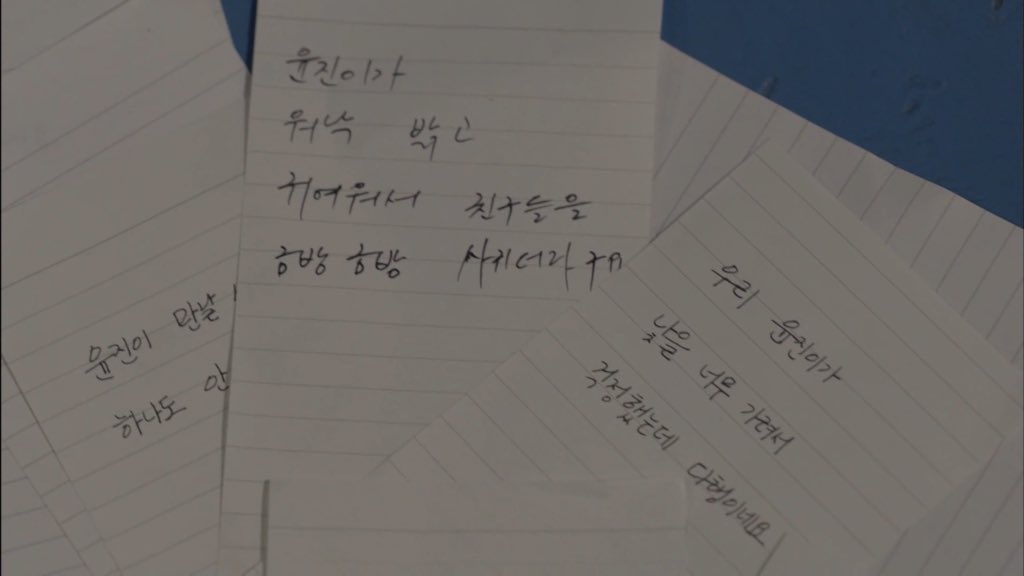 윤진이가
워낙 밝고
귀여워서 친구들을
금방 금방 사귀더라구요
윤진이 만날
하나도 안
우리 윤진이가
낯을 너무 가려서
걱정했는데 다행이네요